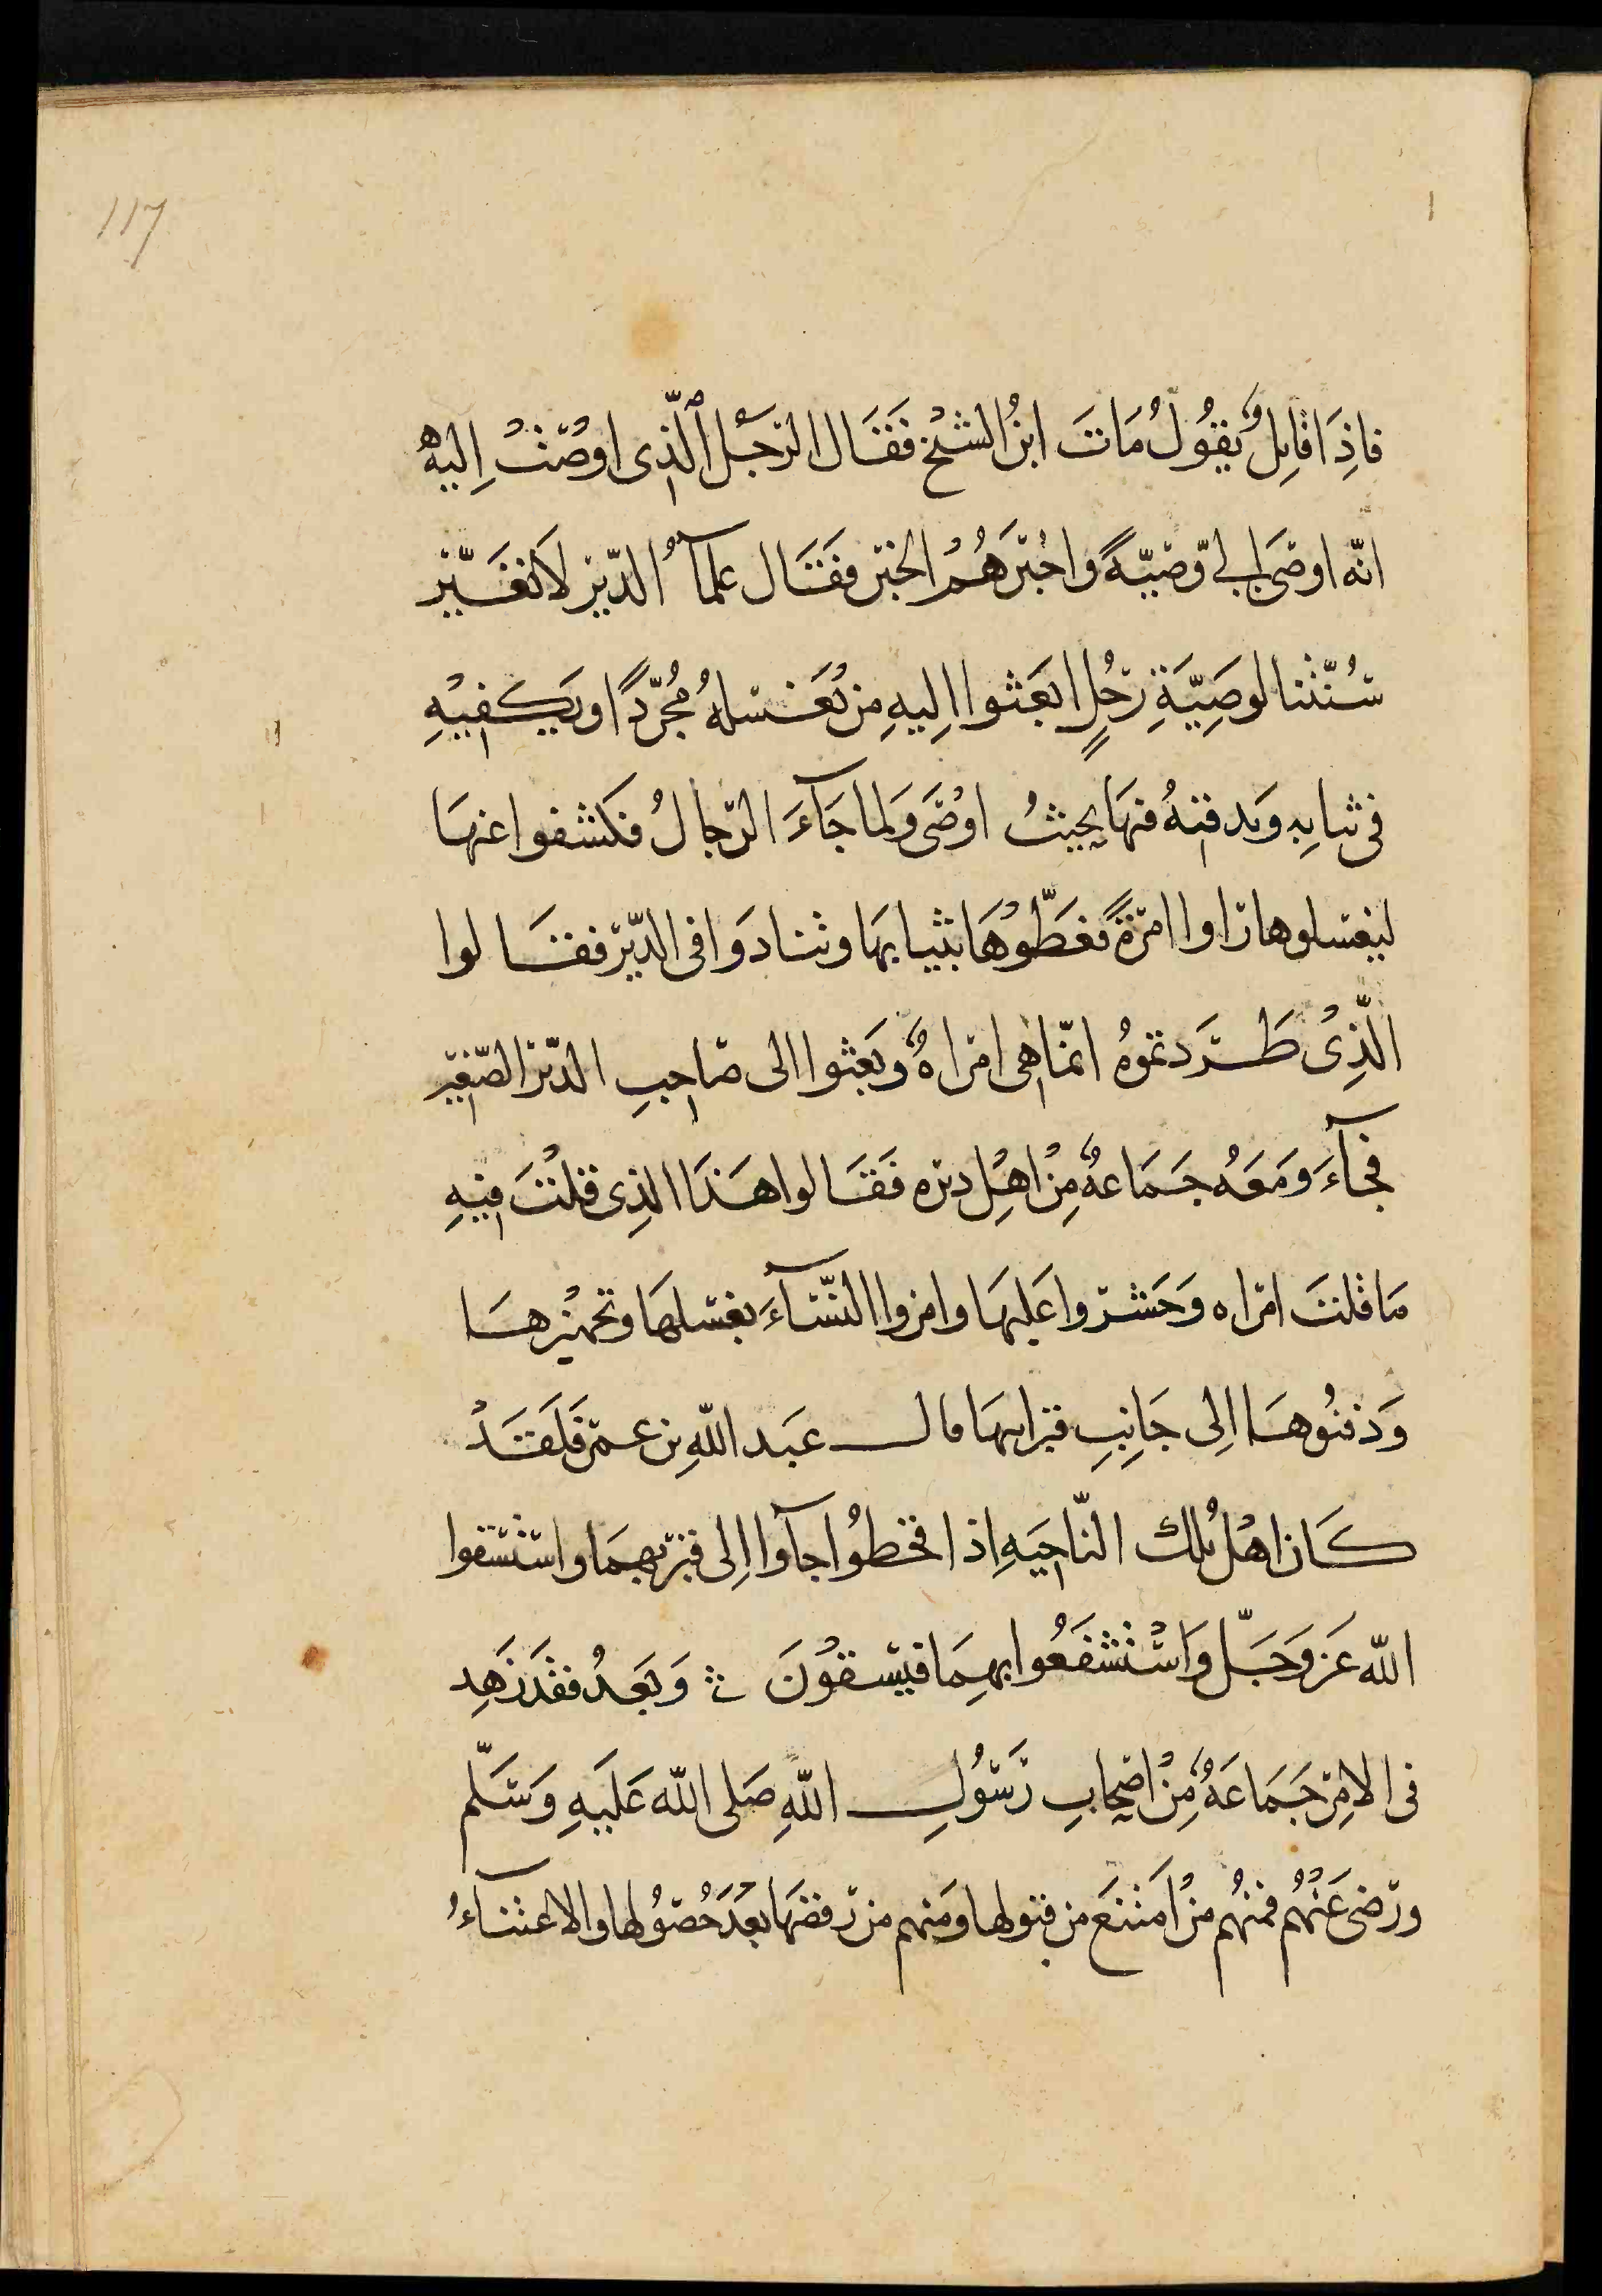 117
فاذِا قايِلٌ يقُولُ مَاتَ ابنُ الشيْخ فَقَال الرّجُل الّذِى اوصْتْ اِليهْ
انّه اوصَى اِلي وّصيّةً واخْبَرهُمْ الخبَر فَقَال علمآءُ الدّير لَا نغَيّر
سُنّتنا لوصِيَّةِ رَجُلٍ ابعَثوا اِليهِ من يُغَسّلهُ مُجرّدًا ويَكفيْهِ
فى ثيابِه وَيدفنهُ فيهَا بحيثُ اوصَى وَلما جَآءَ الرّجالُ فكشفوا عنهَا
ليغسلوها رَاوا امرَةً فغَطّوْهَا بثيابهَا وتنادَوا فى الدّير فقَالوا
الّذِىْ طَردتموهُ انّمَا هى امرَاهٌ وبَعثوا الى صَاحِبِ الدّير الصّغير
فجَآءَ وَمَعَهُ جَمَاعهٌ مِنْ اهْلِ ديره فَقَالوا هَذَا الذِى قلْتَ فيْهِ
مَا قلتَ امرَاه وَحَشرّوا عَليهَا وامروا النّسَآءَ بغسلهَا وتجهيْزهَا
وَدفنُوهَا اِلى جَانِبِ قبرابيهَا قال عَبد اللّهِ بن عمَر فَلَقَدْ
كَان اهْلُ تلك النّاحِيَهِ اذا قحَطوُا جآوا اِلى قبْريهِمَا واستْسقوا
اللّه عَز وَجَلّ وَاسْتشفَعُوا بهِمَا فيسْقوْنَ ثـ وَبَعدُ فقَد زَهِد
فى الامِر جَمَاعَهٌ مِنْ اصْحابِ رَسُولِ اللّهِ صَلى اللّه عَلَيهِ وَسَلّم
ورَضى عَنْهُمْ فمنْهُم منْ امْتنَعَ من قبولها وَمنهم من رَفضهَا بَعْدَ حُصوُلها والاعتنآءُ